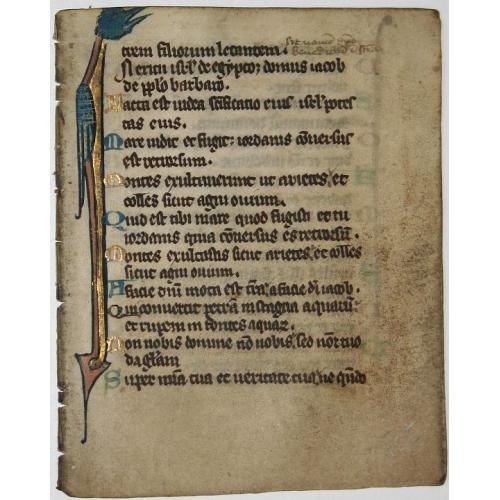 trem filiorum letantem.
In exitu isrl' de egypto; domus iacob
de pplo barbaro.
Facta est iudea sc̄ificatio eius isrl' potes
tas eius.
Mare uidit et fugit; iordanis cōuersus
est retrorsum.
Montes exultauerunt ut arietes, et
colles sicut agni ouium.
Quid est tibi mare quod fugisti et tu
iordanis quia cōuersus es retrorsū.
Montes exultastis sicut arietes, et colles
sicut agni ouium.
A facie dn̄i mota est t̄ra, a facie di iacob.
Qui conuertit petrā in stagna aquarū
et rupem in fontes aquar̄.
Non nobis domine nō nobis, sed noī tuo
da glām
Super mīa tua et ueritate tua, ne qn̄do